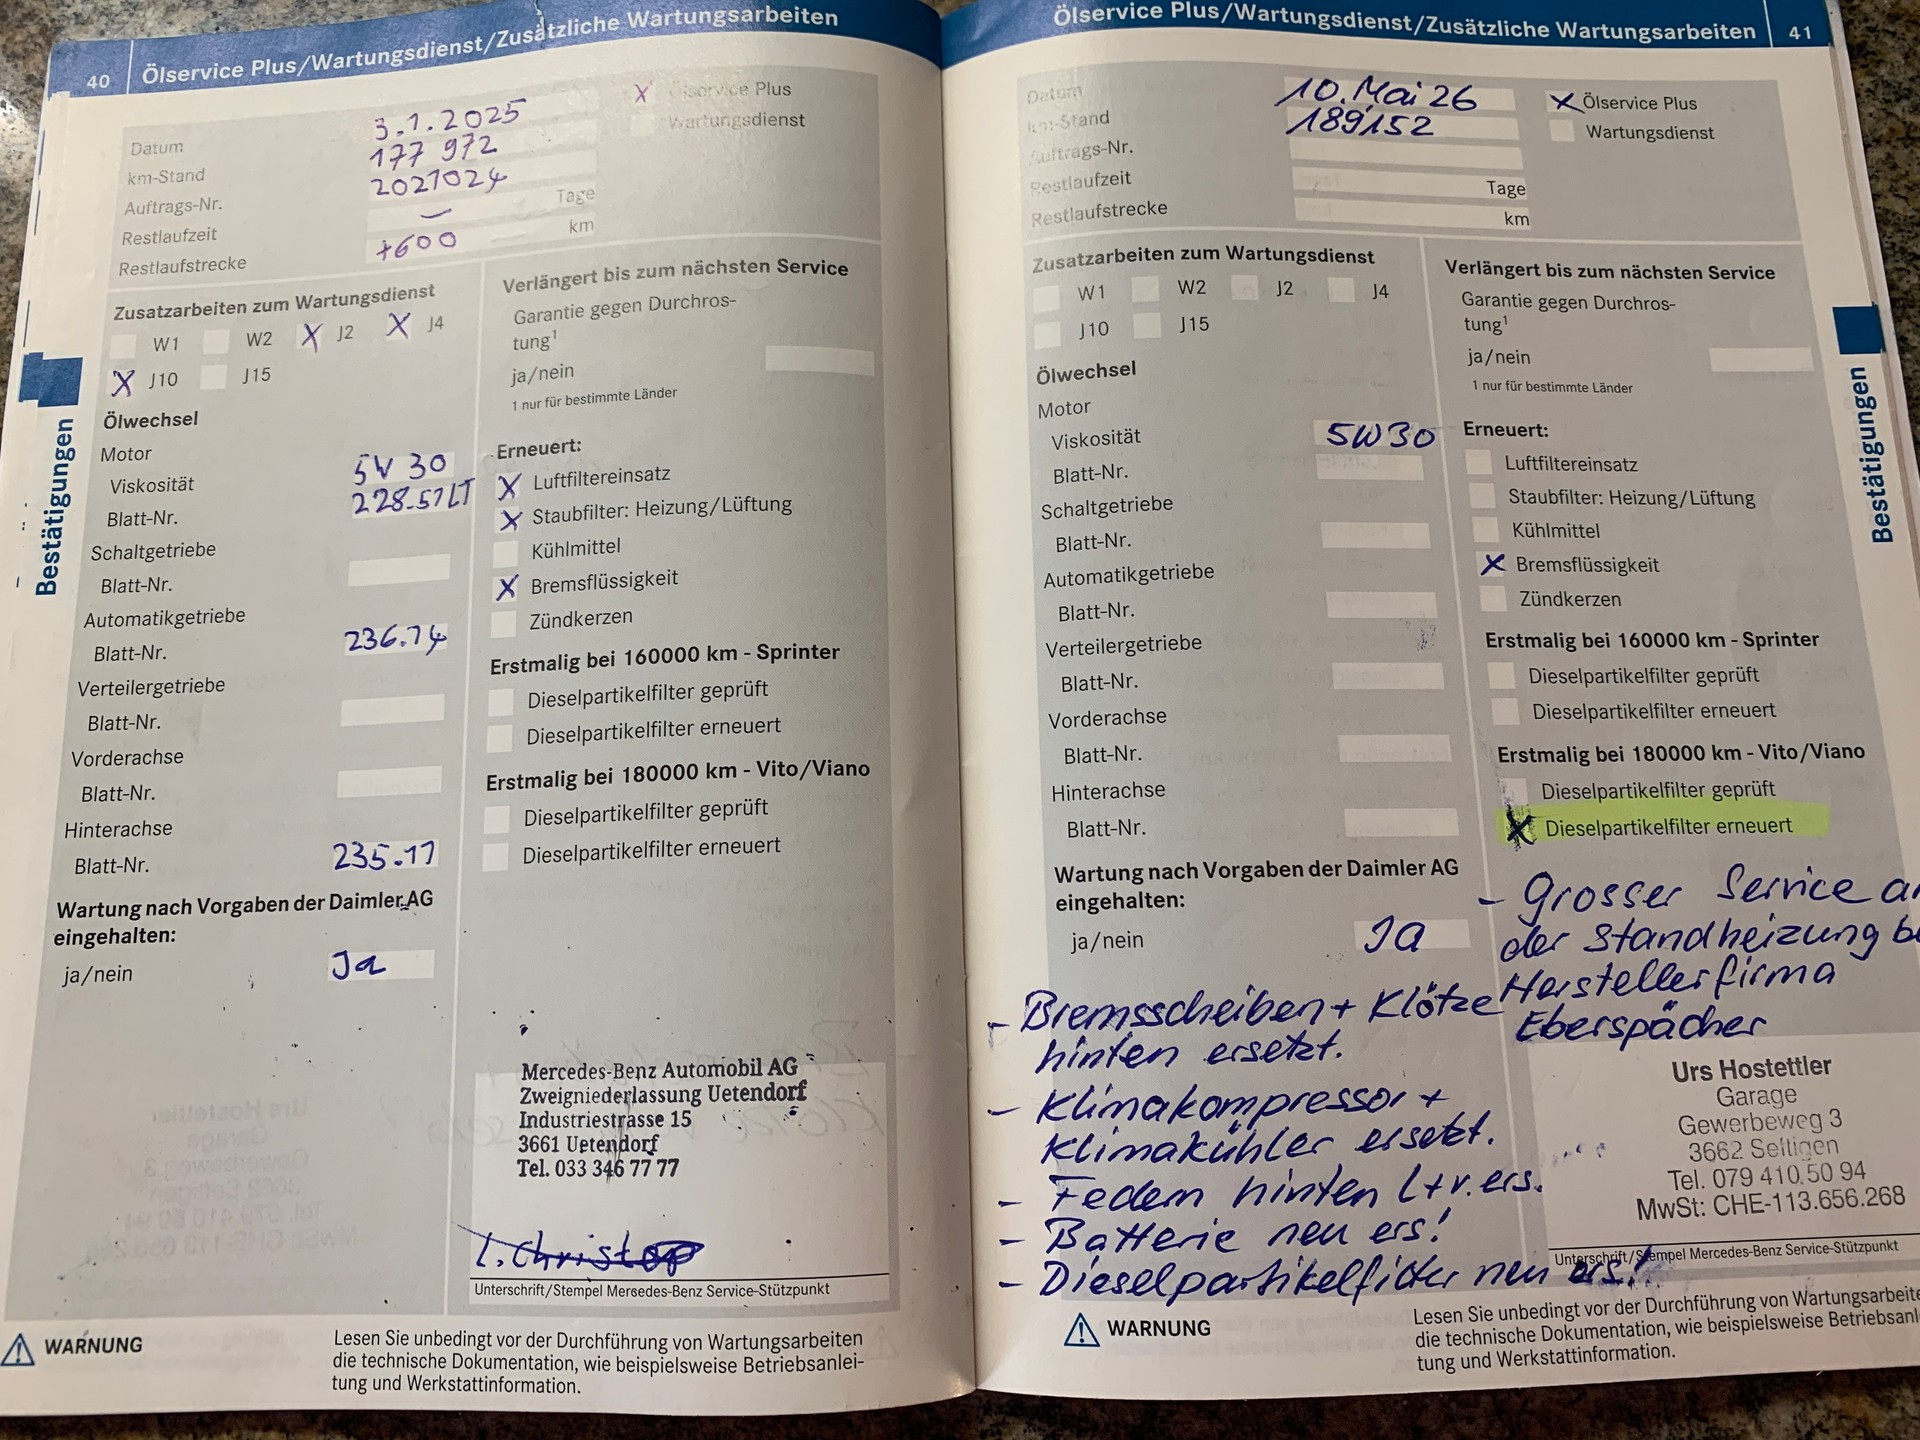 40 Ölservice Plus/Wartungsdienst/Zusätzliche Wartungsarbeiten
Datum 3.1.2025
km-Stand 177 972
Auftrags-Nr. 2021024
Restlaufzeit – Tage
Restlaufstrecke +600 km
X Ölservice Plus
Wartungsdienst
Zusatzarbeiten zum Wartungsdienst
W1 W2 X J2 X J4
X J10 J15
Ölwechsel
Motor
Viskosität 5W30
Blatt-Nr. 228.51LT
Schaltgetriebe
Blatt-Nr.
Automatikgetriebe
Blatt-Nr. 236.14
Verteilergetriebe
Blatt-Nr.
Vorderachse
Blatt-Nr.
Hinterachse
Blatt-Nr. 235.11
Wartung nach Vorgaben der Daimler AG
eingehalten:
ja/nein Ja
Verlängert bis zum nächsten Service
Garantie gegen Durchros-
tung¹
ja/nein
1 nur für bestimmte Länder
Erneuert:
X Luftfiltereinsatz
X Staubfilter: Heizung/Lüftung
Kühlmittel
X Bremsflüssigkeit
Zündkerzen
Erstmalig bei 160000 km - Sprinter
Dieselpartikelfilter geprüft
Dieselpartikelfilter erneuert
Erstmalig bei 180000 km - Vito/Viano
Dieselpartikelfilter geprüft
Dieselpartikelfilter erneuert
Mercedes-Benz Automobil AG
Zweigniederlassung Uetendorf
Industriestrasse 15
3661 Uetendorf
Tel. 033 346 77 77
Unterschrift/Stempel Mersedes-Benz Service-Stützpunkt
Bestätigungen
WARNUNG
Lesen Sie unbedingt vor der Durchführung von Wartungsarbeiten
die technische Dokumentation, wie beispielsweise Betriebsanlei-
tung und Werkstattinformation.
Ölservice Plus/Wartungsdienst/Zusätzliche Wartungsarbeiten 41
Datum 10.Mai 26
km-Stand 189152
Auftrags-Nr.
Restlaufzeit Tage
Restlaufstrecke km
X Ölservice Plus
Wartungsdienst
Zusatzarbeiten zum Wartungsdienst
W1 W2 J2 J4
J10 J15
Ölwechsel
Motor
Viskosität 5W30
Blatt-Nr.
Schaltgetriebe
Blatt-Nr.
Automatikgetriebe
Blatt-Nr.
Verteilergetriebe
Blatt-Nr.
Vorderachse
Blatt-Nr.
Hinterachse
Blatt-Nr.
Wartung nach Vorgaben der Daimler AG
eingehalten:
ja/nein Ja
- Bremsscheiben + Klötze
hinten ersetzt.
- Klimakompressor +
Klimakühler ersetzt.
- Federn hinten l+r. ers.
- Batterie neu ers!
- Dieselpartikelfilter neu ers!
Verlängert bis zum nächsten Service
Garantie gegen Durchros-
tung¹
ja/nein
1 nur für bestimmte Länder
Erneuert:
Luftfiltereinsatz
Staubfilter: Heizung/Lüftung
Kühlmittel
X Bremsflüssigkeit
Zündkerzen
Erstmalig bei 160000 km - Sprinter
Dieselpartikelfilter geprüft
Dieselpartikelfilter erneuert
Erstmalig bei 180000 km - Vito/Viano
Dieselpartikelfilter geprüft
X Dieselpartikelfilter erneuert
- Grosser Service an
der Standheizung be
Herstellerfirma
Eberspächer
Urs Hostettler
Garage
Gewerbeweg 3
3662 Seftigen
Tel. 079 410 50 94
MwSt: CHE-113.656.268
Unterschrift/Stempel Mercedes-Benz Service-Stützpunkt
Bestätigungen
WARNUNG
Lesen Sie unbedingt vor der Durchführung von Wartungsarbeite
die technische Dokumentation, wie beispielsweise Betriebsanl
tung und Werkstattinformation.